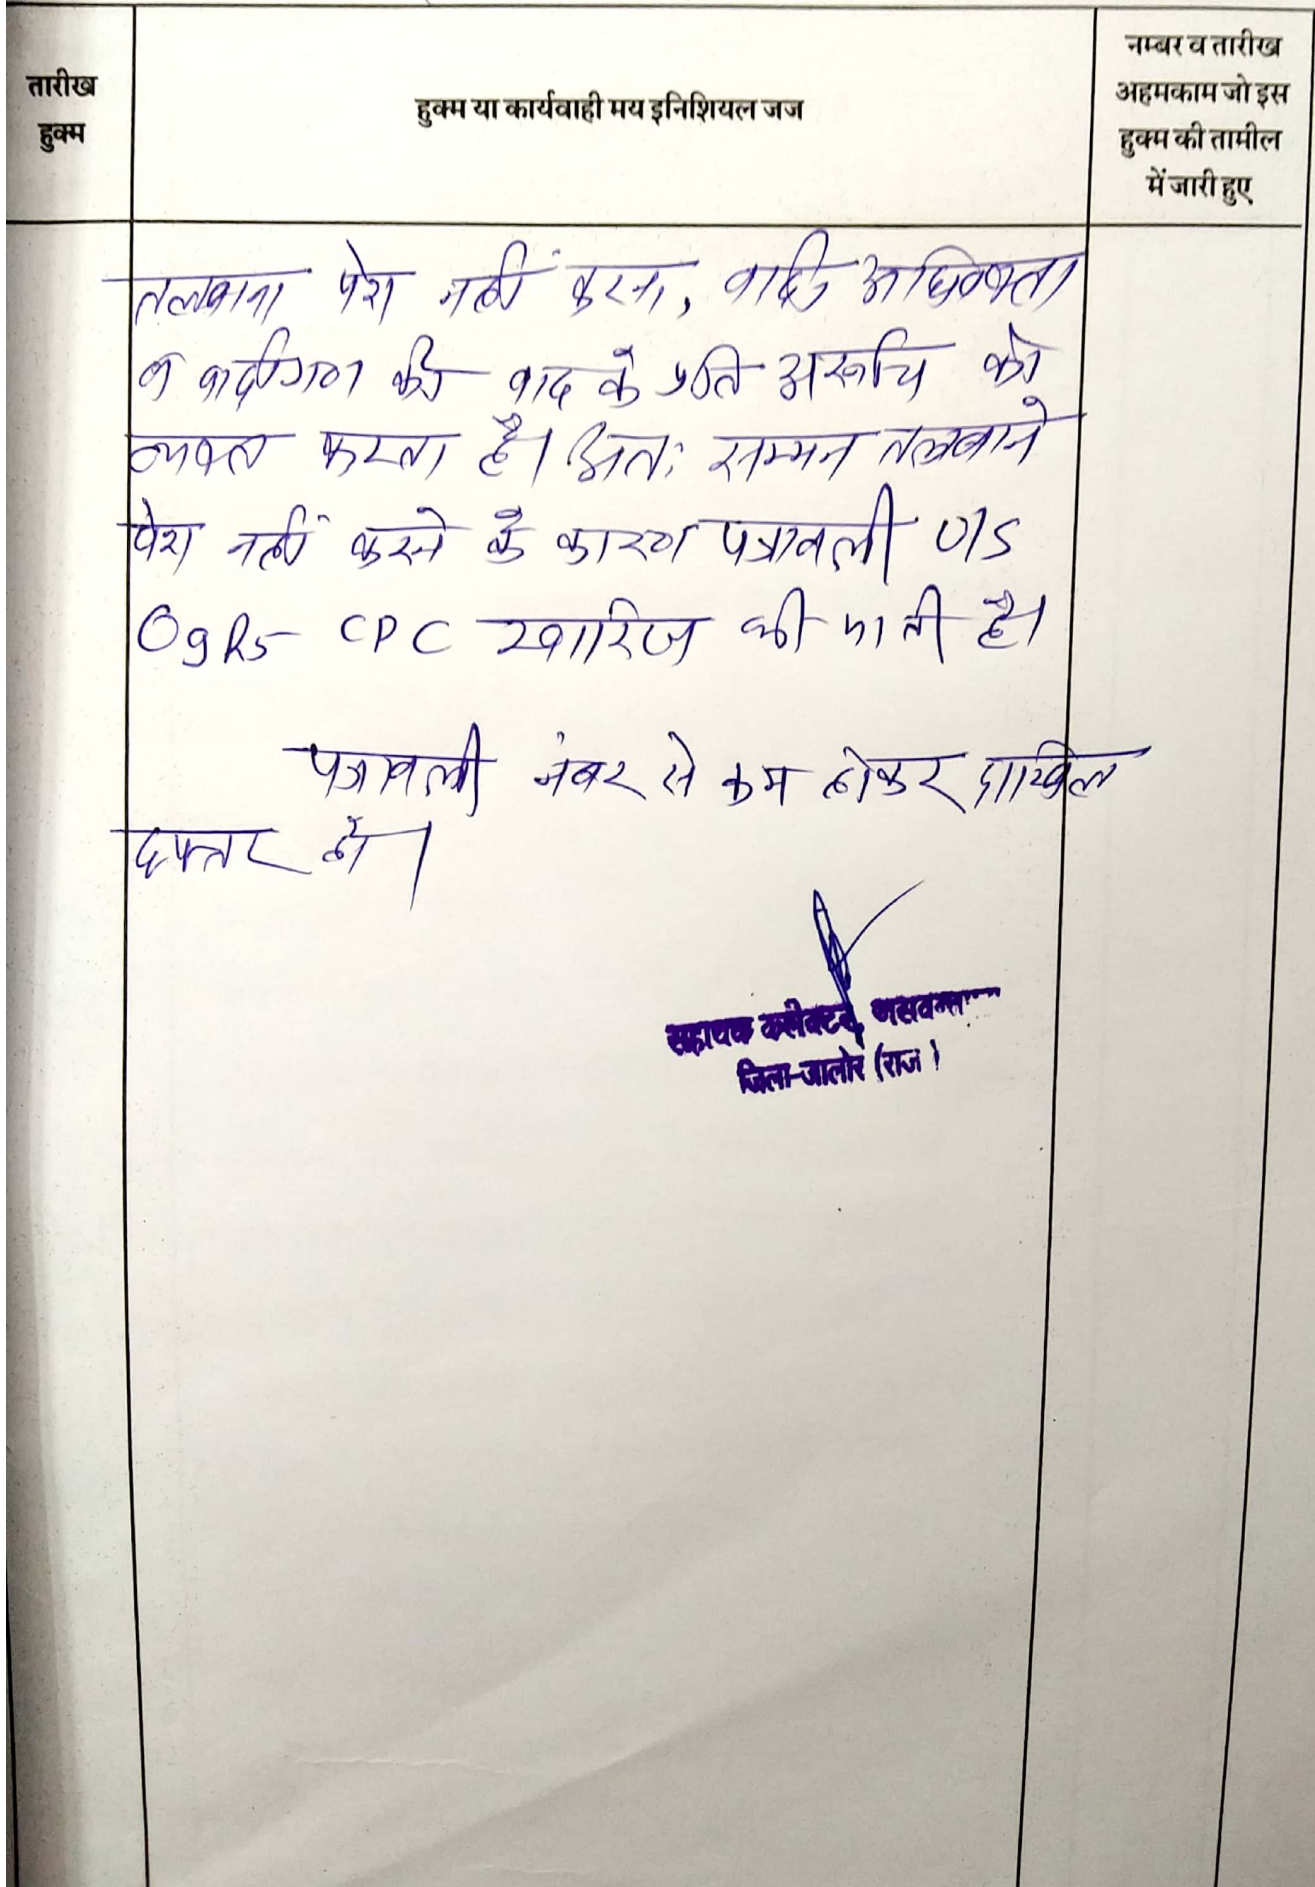 तारीख
हुक्म
हुक्म या कार्यवाही मय इनिशियल जज
नम्बर व तारीख
अहमकाम जो इस
हुक्म की तामील
में जारी हुए
तलबाना पेश नहीं करना, वादी अधिवक्ता
व वादीगण की वाद के प्रति अरूचि को
व्यक्त करता है। अतः सम्मन तलबाने
पेश नहीं करने के कारण पत्रावली U/S
O9R5 CPC खारिज की जाती है।
पत्रावली नंबर से कम होकर दाखिल
दफ्तर हो।
सहायक कलेक्टर,
जिला-जालोर (राज)